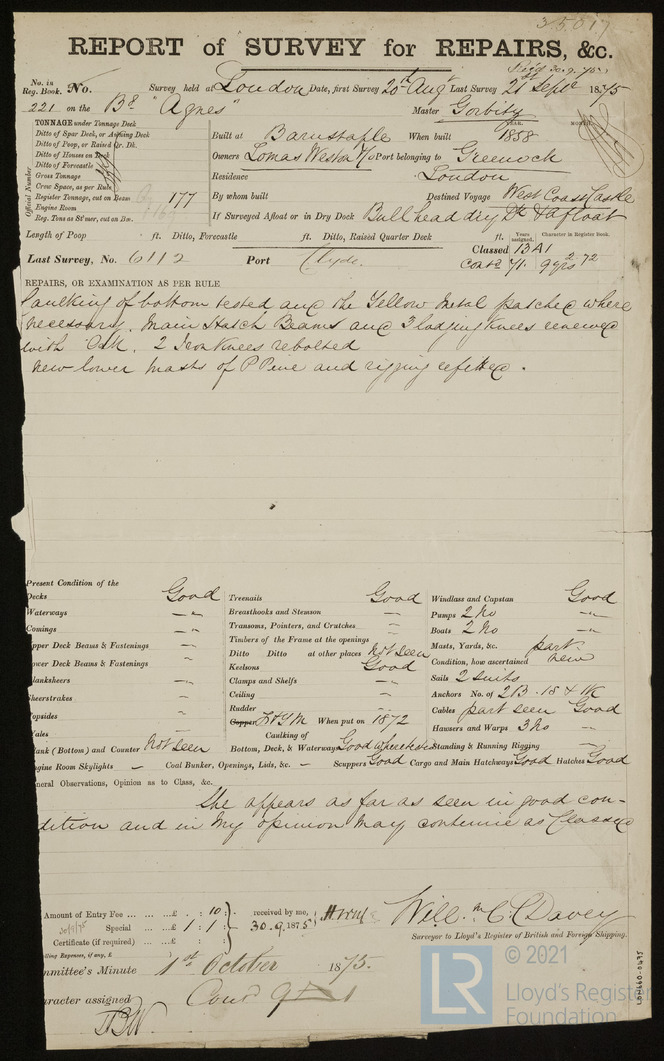 35017
REPORT of SURVEY for REPAIRS, &c.
Recd 30.9.75
No. in Reg. Book. No. Survey held at London Date, first Survey 20th Augt Last Survey 21 Septr 1875
221 on the Bk "Agnes" Master Gorbity
TONNAGE under Tonnage Deck
Ditto of Spar Deck, or Awning Deck
Ditto of Poop, or Raised Qr. Dk.
Ditto of Houses on Deck
Ditto of Forecastle
Gross Tonnage
Crew Space, as per Rule
Register Tonnage, cut on Beam 177
Engine Room
Reg. Tons as St'mer, cut on Bm.
Official Number
YEAR. MONTH.
Built at Barnstaple When built 1858
Owners Lomas Weston &Co Port belonging to Greenock
Residence London
By whom built Destined Voyage West Coast Castle
If Surveyed Afloat or in Dry Dock Bull head dry Dk & afloat
Length of Poop ft. Ditto, Forecastle ft. Ditto, Raised Quarter Deck ft.
Years assigned. Character in Register Book.
Classed 13A1
Last Survey, No. 6112 Port Clyde. Contd 71. 9yrs 2.72
REPAIRS, OR EXAMINATION AS PER RULE
Caulking of bottom tested and the Yellow Metal patched where
necessary. Main Hatch Beams and 3 lodging Knees renewed
with Oak. 2 Iron Knees rebolted
New lower masts of P Pine and rigging refitted.
Present Condition of the
Decks Good
Waterways "
Comings "
Upper Deck Beams & Fastenings "
Lower Deck Beams & Fastenings "
Planksheers "
Sheerstrakes "
Topsides "
Wales "
Plank (Bottom) and Counter Not seen
Engine Room Skylights – Coal Bunker, Openings, Lids, &c. – Scuppers Good Cargo and Main Hatchways Good Hatches Good
Treenails Good
Breasthooks and Stemson "
Transoms, Pointers, and Crutches "
Timbers of the Frame at the openings
Ditto Ditto at other places Not seen
Keelsons Good
Clamps and Shelfs "
Ceiling "
Rudder "
Copper F&YM When put on 1872
Caulking of
Bottom, Deck, & Waterways Good where seen
Windlass and Capstan Good
Pumps 2 No "
Boats 2 No "
Masts, Yards, &c. part new
Condition, how ascertained
Sails 2 suits
Anchors No. of 2B. 1S & 1K
Cables part seen Good
Hawsers and Warps 3 No
Standing & Running Rigging "
General Observations, Opinion as to Class, &c.
She appears as far as seen in good con-
dition and in my opinion may continue as Classed
Amount of Entry Fee ... £ : 10 :
Special ... £ 1 : 1 :
Certificate (if required) ... £ : :
received by me,
30.9.1875
30/9/75
Travelling Expenses, if any, £
Will. m C C Davey
Surveyor to Lloyd's Register of British and Foreign Shipping.
Committee's Minute 1st October 1875.
Character assigned Contd 9
LON660-0495
© 2021
LR
Lloyd's Register
Foundation